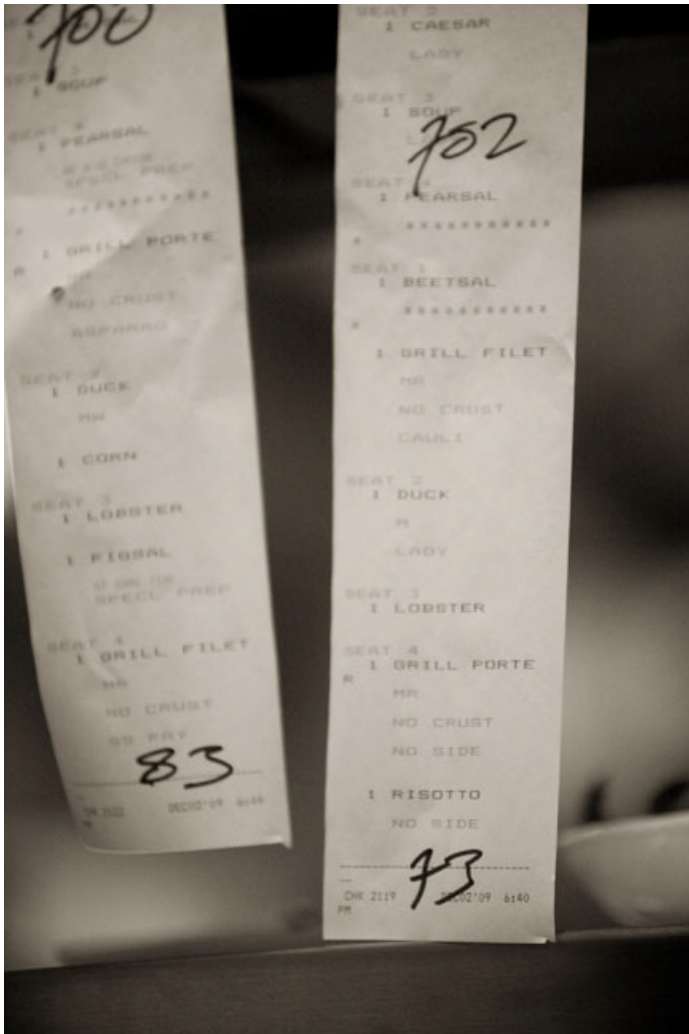 700
1 SOUP
SEAT 4
1 PEARSAL
SPECL PREP
***********
*
1 GRILL PORTE
R
MR
NO CRUST
ASPARAG
SEAT 2
1 DUCK
MW
1 CORN
SEAT 3
1 LOBSTER
1 FIGSAL
SPECL PREP
SEAT 4
1 GRILL FILET
MR
NO CRUST
83
DEC02'09 6:44
PM
SEAT 2
1 CAESAR
LADY
SEAT 3
1 SOUP
702
SEAT 4
1 PEARSAL
***********
*
SEAT 1
1 BEETSAL
***********
*
1 GRILL FILET
MR
NO CRUST
CAULI
SEAT 2
1 DUCK
M
LADY
SEAT 3
1 LOBSTER
SEAT 4
1 GRILL PORTE
R
MR
NO CRUST
NO SIDE
1 RISOTTO
NO SIDE
73
CHK 2119 DEC02'09 6:40
PM